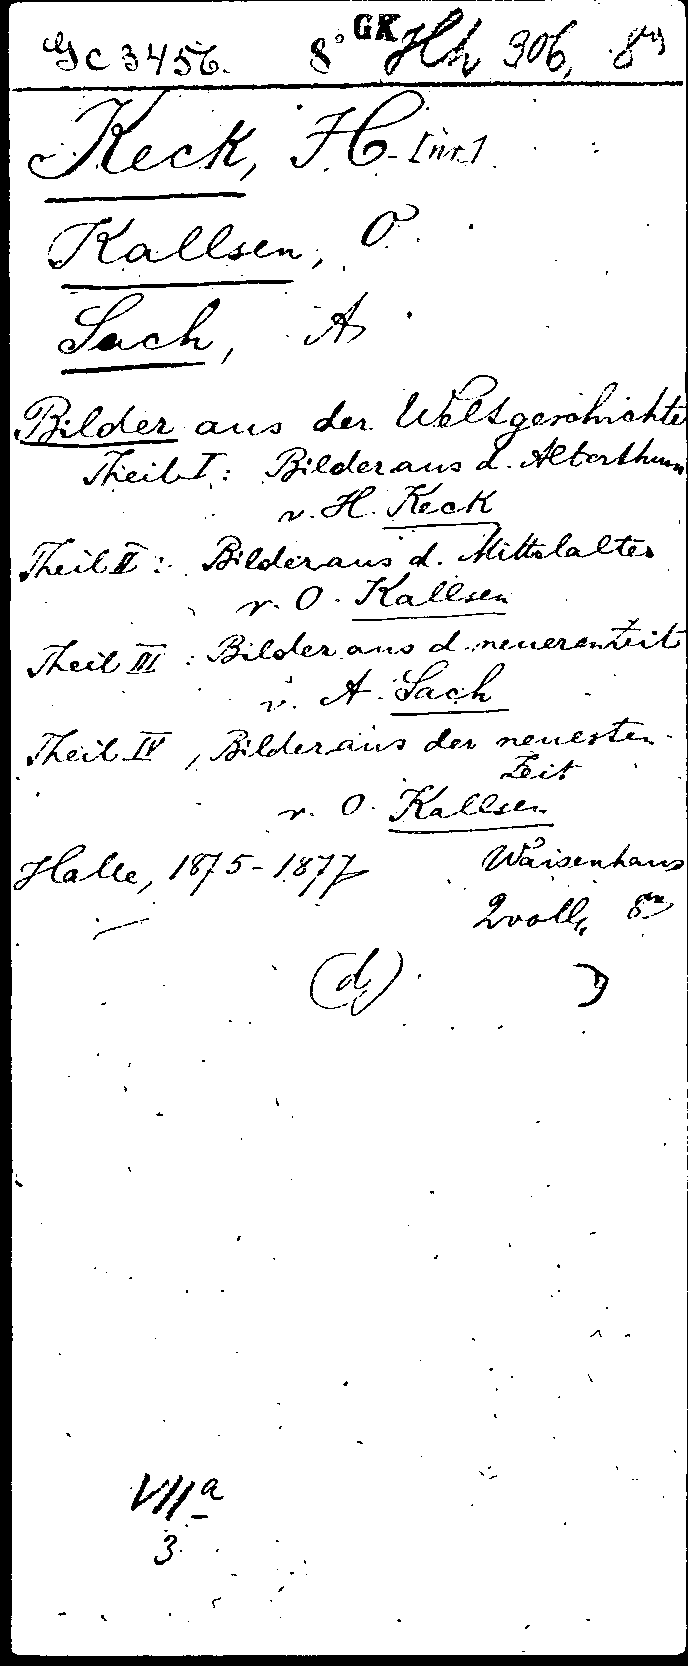 Gc 3456. 8° GK Hh 306, 8°
Keck, H.
Kallsen, O.
Sach, A.
Bilder aus der Weltgeschichte
Theil I: Bilder aus d. Alterthum
v. H. Keck
Theil II: Bilder aus d. Mittelalter
v. O. Kallsen
Theil III: Bilder aus d. neueren Zeit
v. A. Sach
Theil IV, Bilder aus der neuesten
Zeit
v. O. Kallsen
Halle, 1875-1877 Waisenhaus
2 voll, 8°
(d)
VII a
3